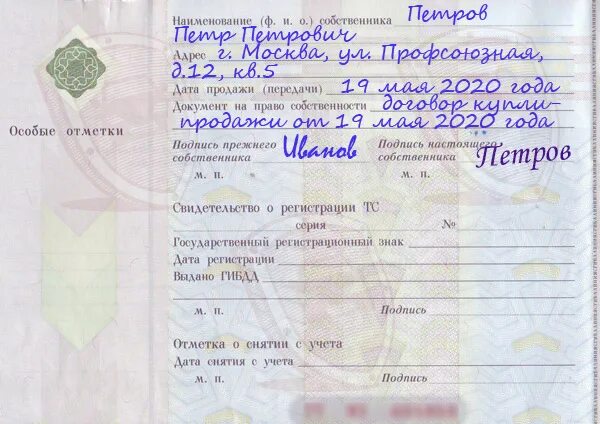 Наименование (ф. и. о.) собственника Петров
Петр Петрович
Адрес г. Москва, ул. Профсоюзная,
д.12, кв.5
Дата продажи (передачи) 19 мая 2020 года
Документ на право собственности договор купли-
продажи от 19 мая 2020 года
Особые отметки
Подпись прежнего собственника Иванов
Подпись настоящего собственника Петров
м. п. м. п.
Свидетельство о регистрации ТС
серия №
Государственный регистрационный знак
Дата регистрации
Выдано ГИБДД
м. п. Подпись
Отметка о снятии с учета
Дата снятия с учета
м. п. Подпись